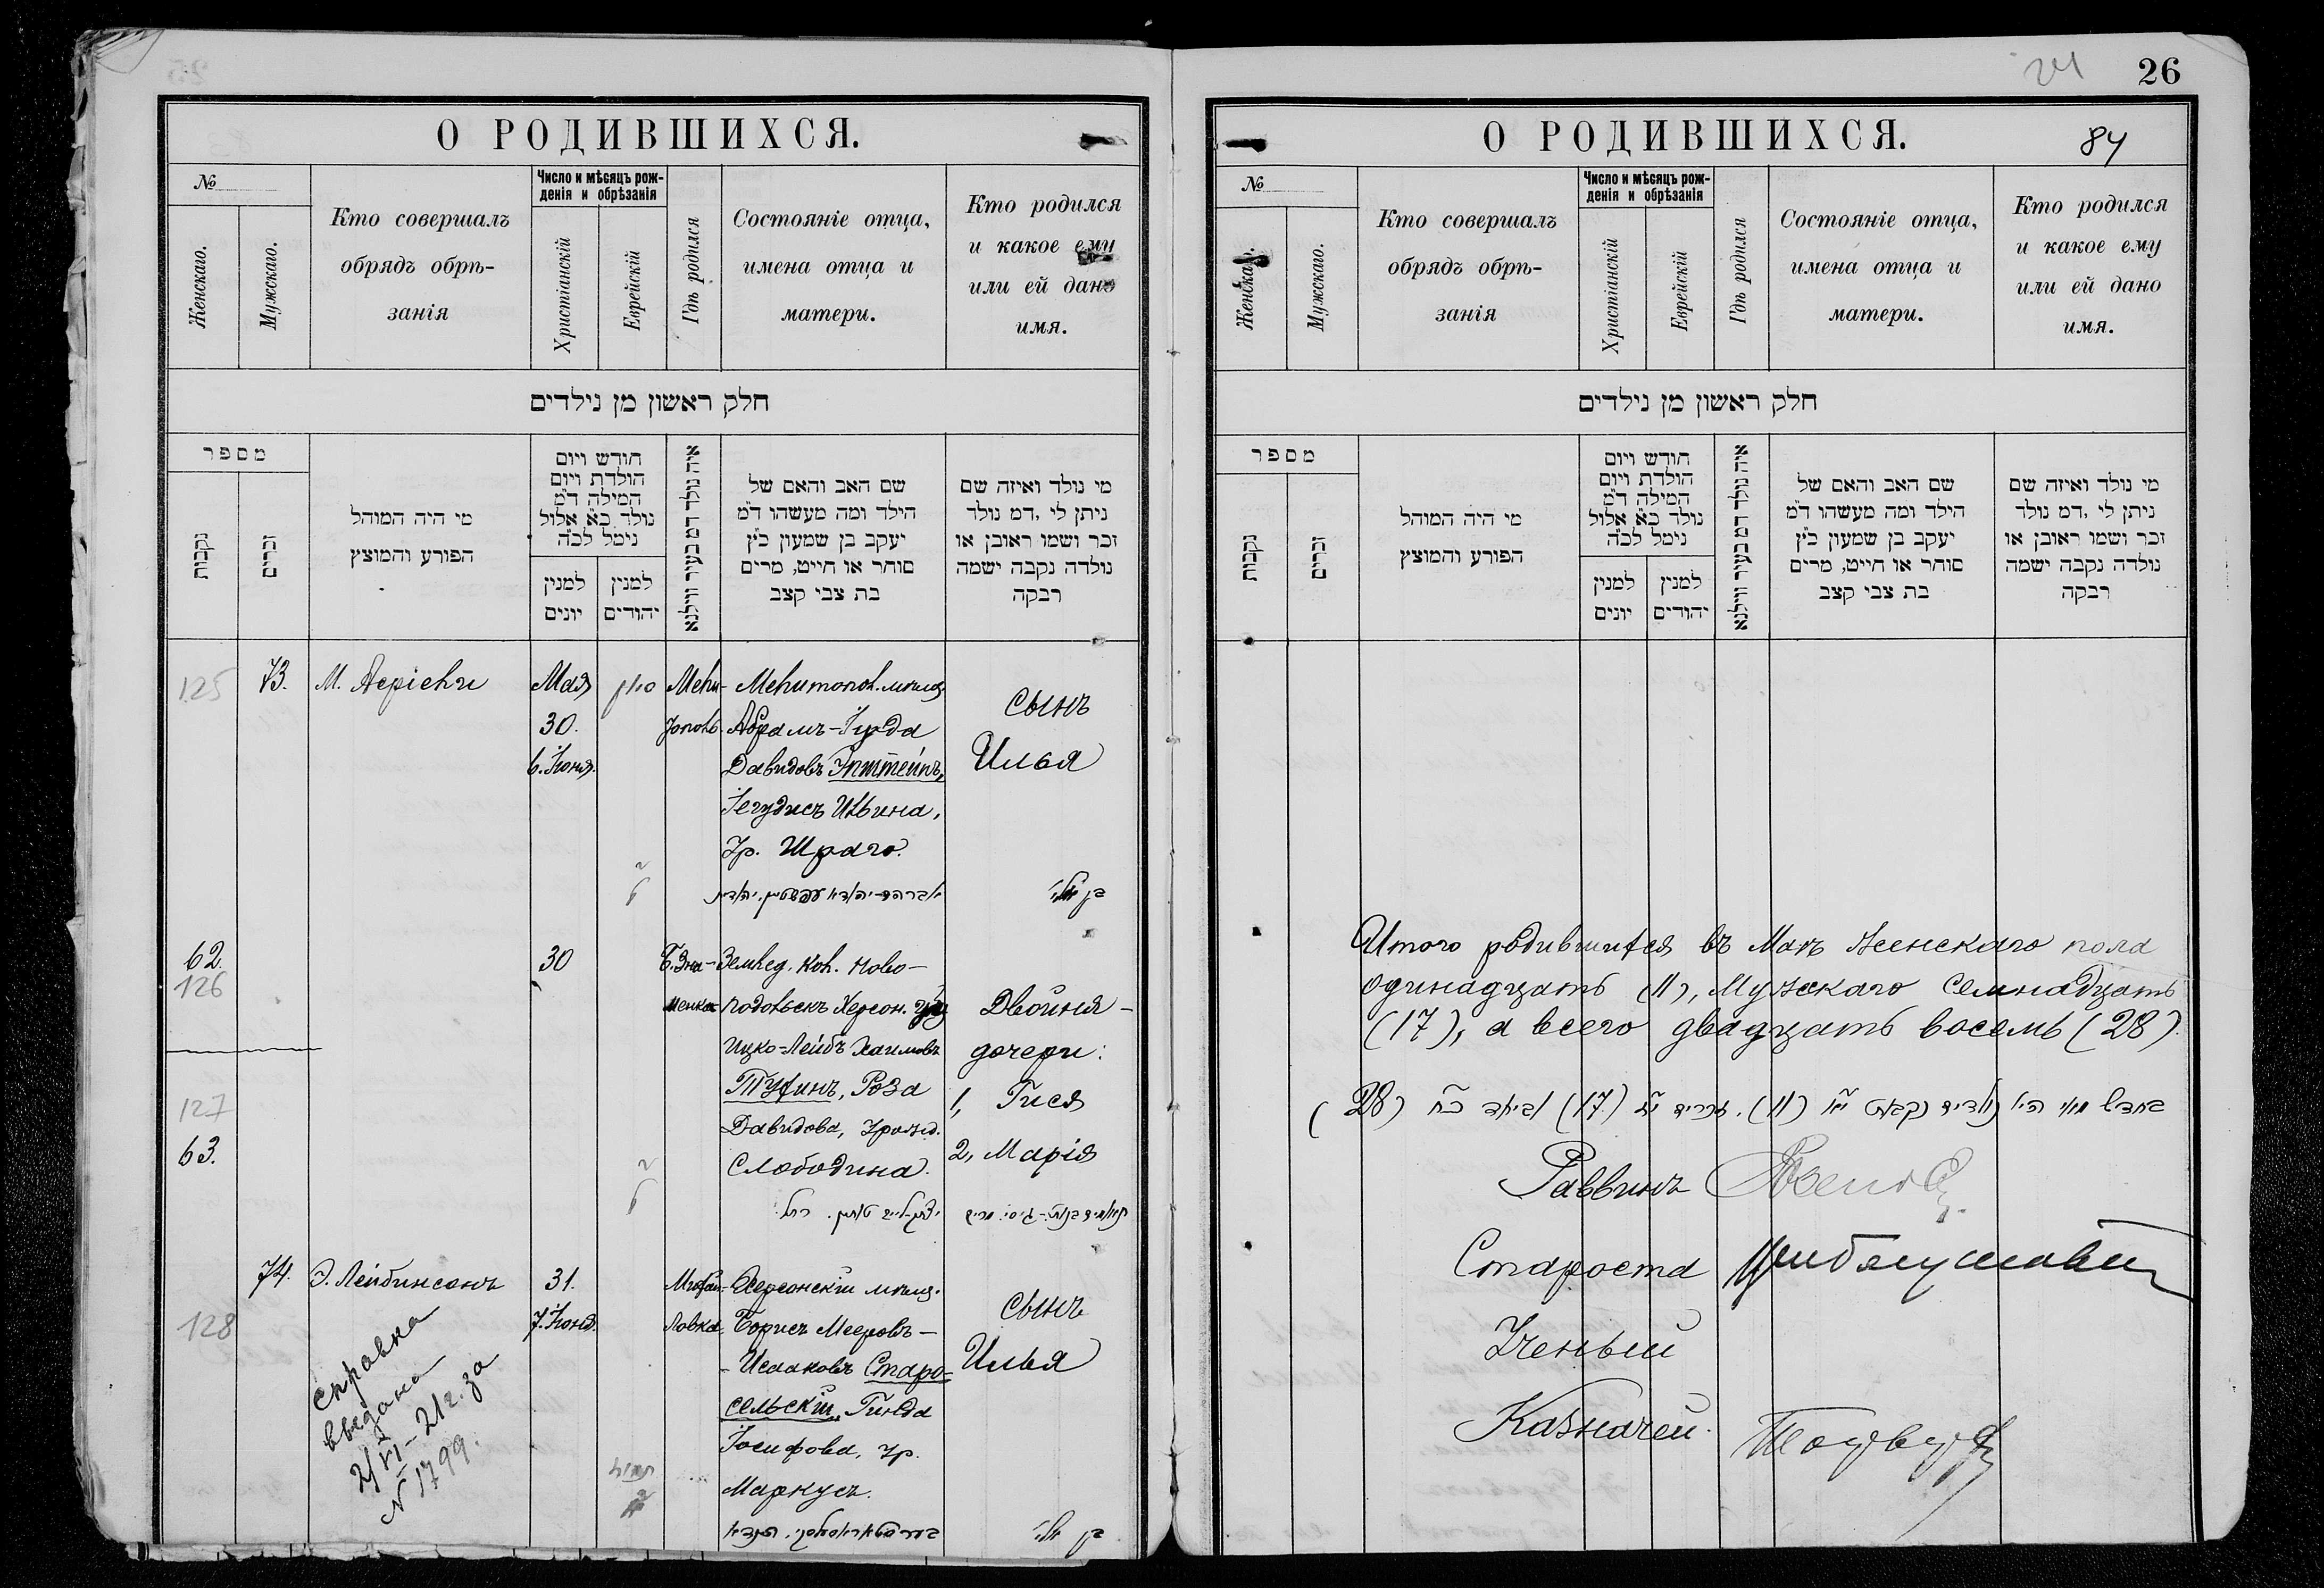 О РОДИВШИХСЯ.
№
Женскаго.
Мужскаго.
Кто совершалъ
обрядъ обрѣ-
занія
Число и мѣсяцъ рож-
денія и обрѣзанія
Христіанскій
Еврейскій
Гдѣ родился
Состояніе отца,
имена отца и
матери.
Кто родился
и какое ему
или ей дано
имя.
חלק ראשון מן נילדים
מספר
נקבות
זכרים
מי היה המוהל
הפורע והמוצץ
חודש ויום
הולדת ויום
המילה ד״מ
נולד כ״א אלול
נימל לכ״ה
למנין
יונים
למנין
יהודים
איה נולד דמ בעיר ווילנא
שם האב והאם של
הילד ומה מעשהו ד״מ
יעקב בן שמעון כ״ץ
סוחר או חייט, מרים
בת צבי קצב
מי נולד ואיזה שם
ניתן לי, דמ נולד
זכר ושמו ראובן או
נולדה נקבה ישמה
רבקה
125
73.
М. Аеріевъ
Мая
30.
6. Іюня.
סיון
Мели-
тополь
Мелитопол. мѣщ.
Абрамъ-Іуда
Давидовъ Эпштейнъ,
Іегудисъ
ур. Шраго.
сынъ
Илья
62.
126
30
Б. Зна-
менка
Землед. кол. Ново-
подольскъ Херсон. губ.
Ицко-Лейбъ Хаимовъ
Туфинъ, Роза
Давидова, урожд.
Слободина.
Двойня -
дочери:
1, Гися
2, Марія
127
63.
74.
Э. Лейбинсонъ
31.
7. Іюня.
128
Херсонскій мѣщ.
Борисъ Мееровъ-
-Исааковъ Старо-
сельскій, Гинда
Іосифова, ур.
Маркусъ.
сынъ
Илья
справка
выдана
2/VI-21г. за
№ 1799.
26
О РОДИВШИХСЯ.
84
№
Женскаго.
Мужскаго.
Кто совершалъ
обрядъ обрѣ-
занія
Число и мѣсяцъ рож-
денія и обрѣзанія
Христіанскій
Еврейскій
Гдѣ родился
Состояніе отца,
имена отца и
матери.
Кто родился
и какое ему
или ей дано
имя.
חלק ראשון מן נילדים
מספר
נקבות
זכרים
מי היה המוהל
הפורע והמוצץ
חודש ויום
הולדת ויום
המילה ד״מ
נולד כ״א אלול
נימל לכ״ה
למנין
יונים
למנין
יהודים
איה נולד דמ בעיר ווילנא
שם האב והאם של
הילד ומה מעשהו ד״מ
יעקב בן שמעון כ״ץ
סוחר או חייט, מרים
בת צבי קצב
מי נולד ואיזה שם
ניתן לי, דמ נולד
זכר ושמו ראובן או
נולדה נקבה ישמה
רבקה
Итого родившихся въ Маѣ женскаго пола
одинадцать (11), мужскаго семнадцать
(17), а всего двадцать восемь (28).
Раввинъ
Староста
Ученый
Казначей.